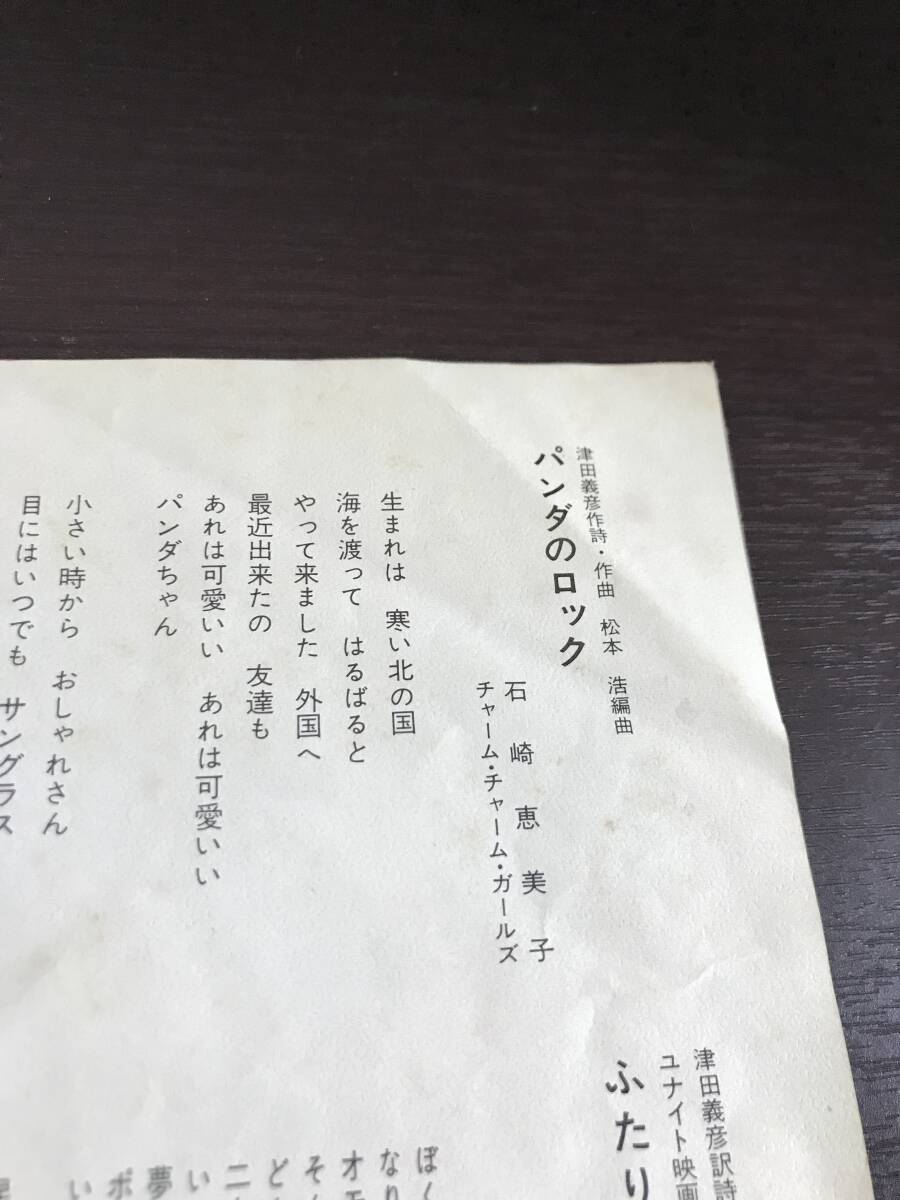 津田義彦作詩・作曲 松本 浩編曲
パンダのロック
石崎恵美子
チャーム・チャーム・ガールズ
生まれは 寒い北の国
海を渡って はるばると
やって来ました 外国へ
最近出来たの 友達も
あれは可愛いい あれは可愛いい
パンダちゃん
小さい時から おしゃれさん
目にはいつでも サングラス
津田義彦訳詩
ユナイト映画
ふたり
ぼく
なり
オモ
そん
ど
二
い
夢
ポ
い